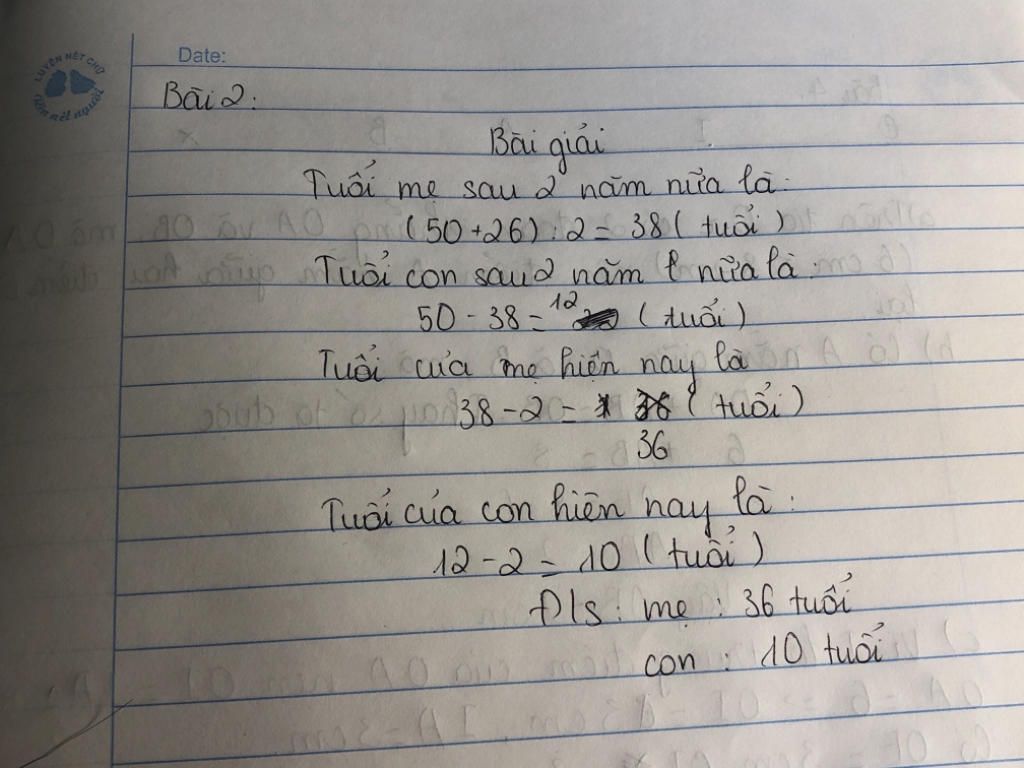 LUYỆN NÉT CHỮ
Rèn nét người
Date:
Bài 2:
Bài giải
Tuổi mẹ sau 2 năm nữa là:
(50+26):2= 38 ( tuổi )
Tuổi con sau 2 năm nữa là:
50 - 38 = 12 ( tuổi )
Tuổi của mẹ hiện nay là
38 - 2 = ( tuổi )
36
Tuổi của con hiện nay là:
12 - 2 = 10 ( tuổi )
Đ/s : mẹ : 36 tuổi
con : 10 tuổi